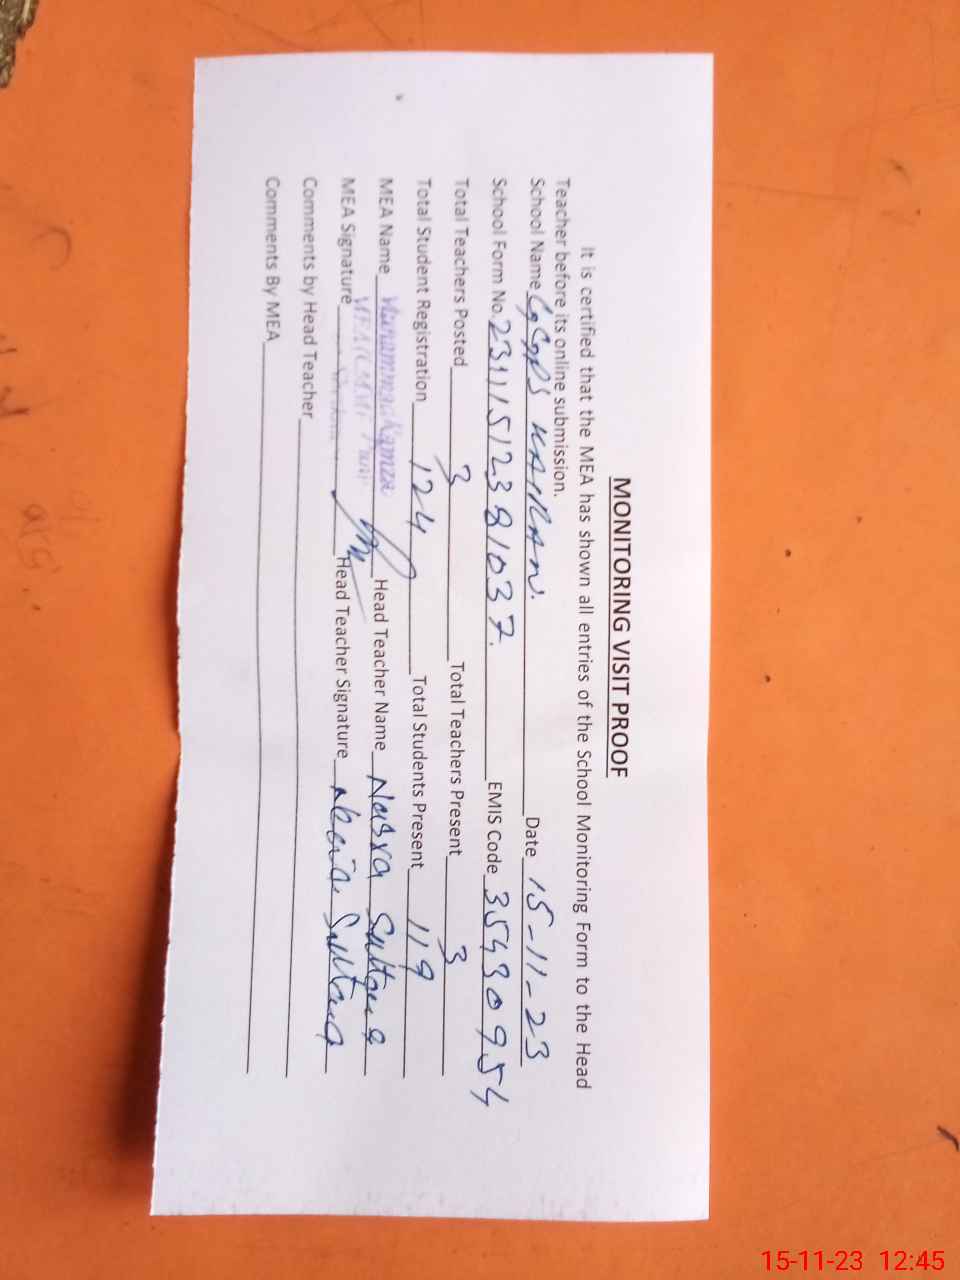 MONITORING VISIT PROOF
It is certified that the MEA has shown all entries of the School Monitoring Form to the Head
Teacher before its online submission.
School Name GGPS KAIRAN. Date 15-11-23
School Form No. 23111512381037. EMIS Code 35430954
Total Teachers Posted 3 Total Teachers Present 3
Total Student Registration 124 Total Students Present 119
MEA Name Muhammad Ramzan Head Teacher Name Nasra Sultana
MEA Signature Head Teacher Signature Sultana
Comments by Head Teacher
Comments By MEA
15-11-23 12:45